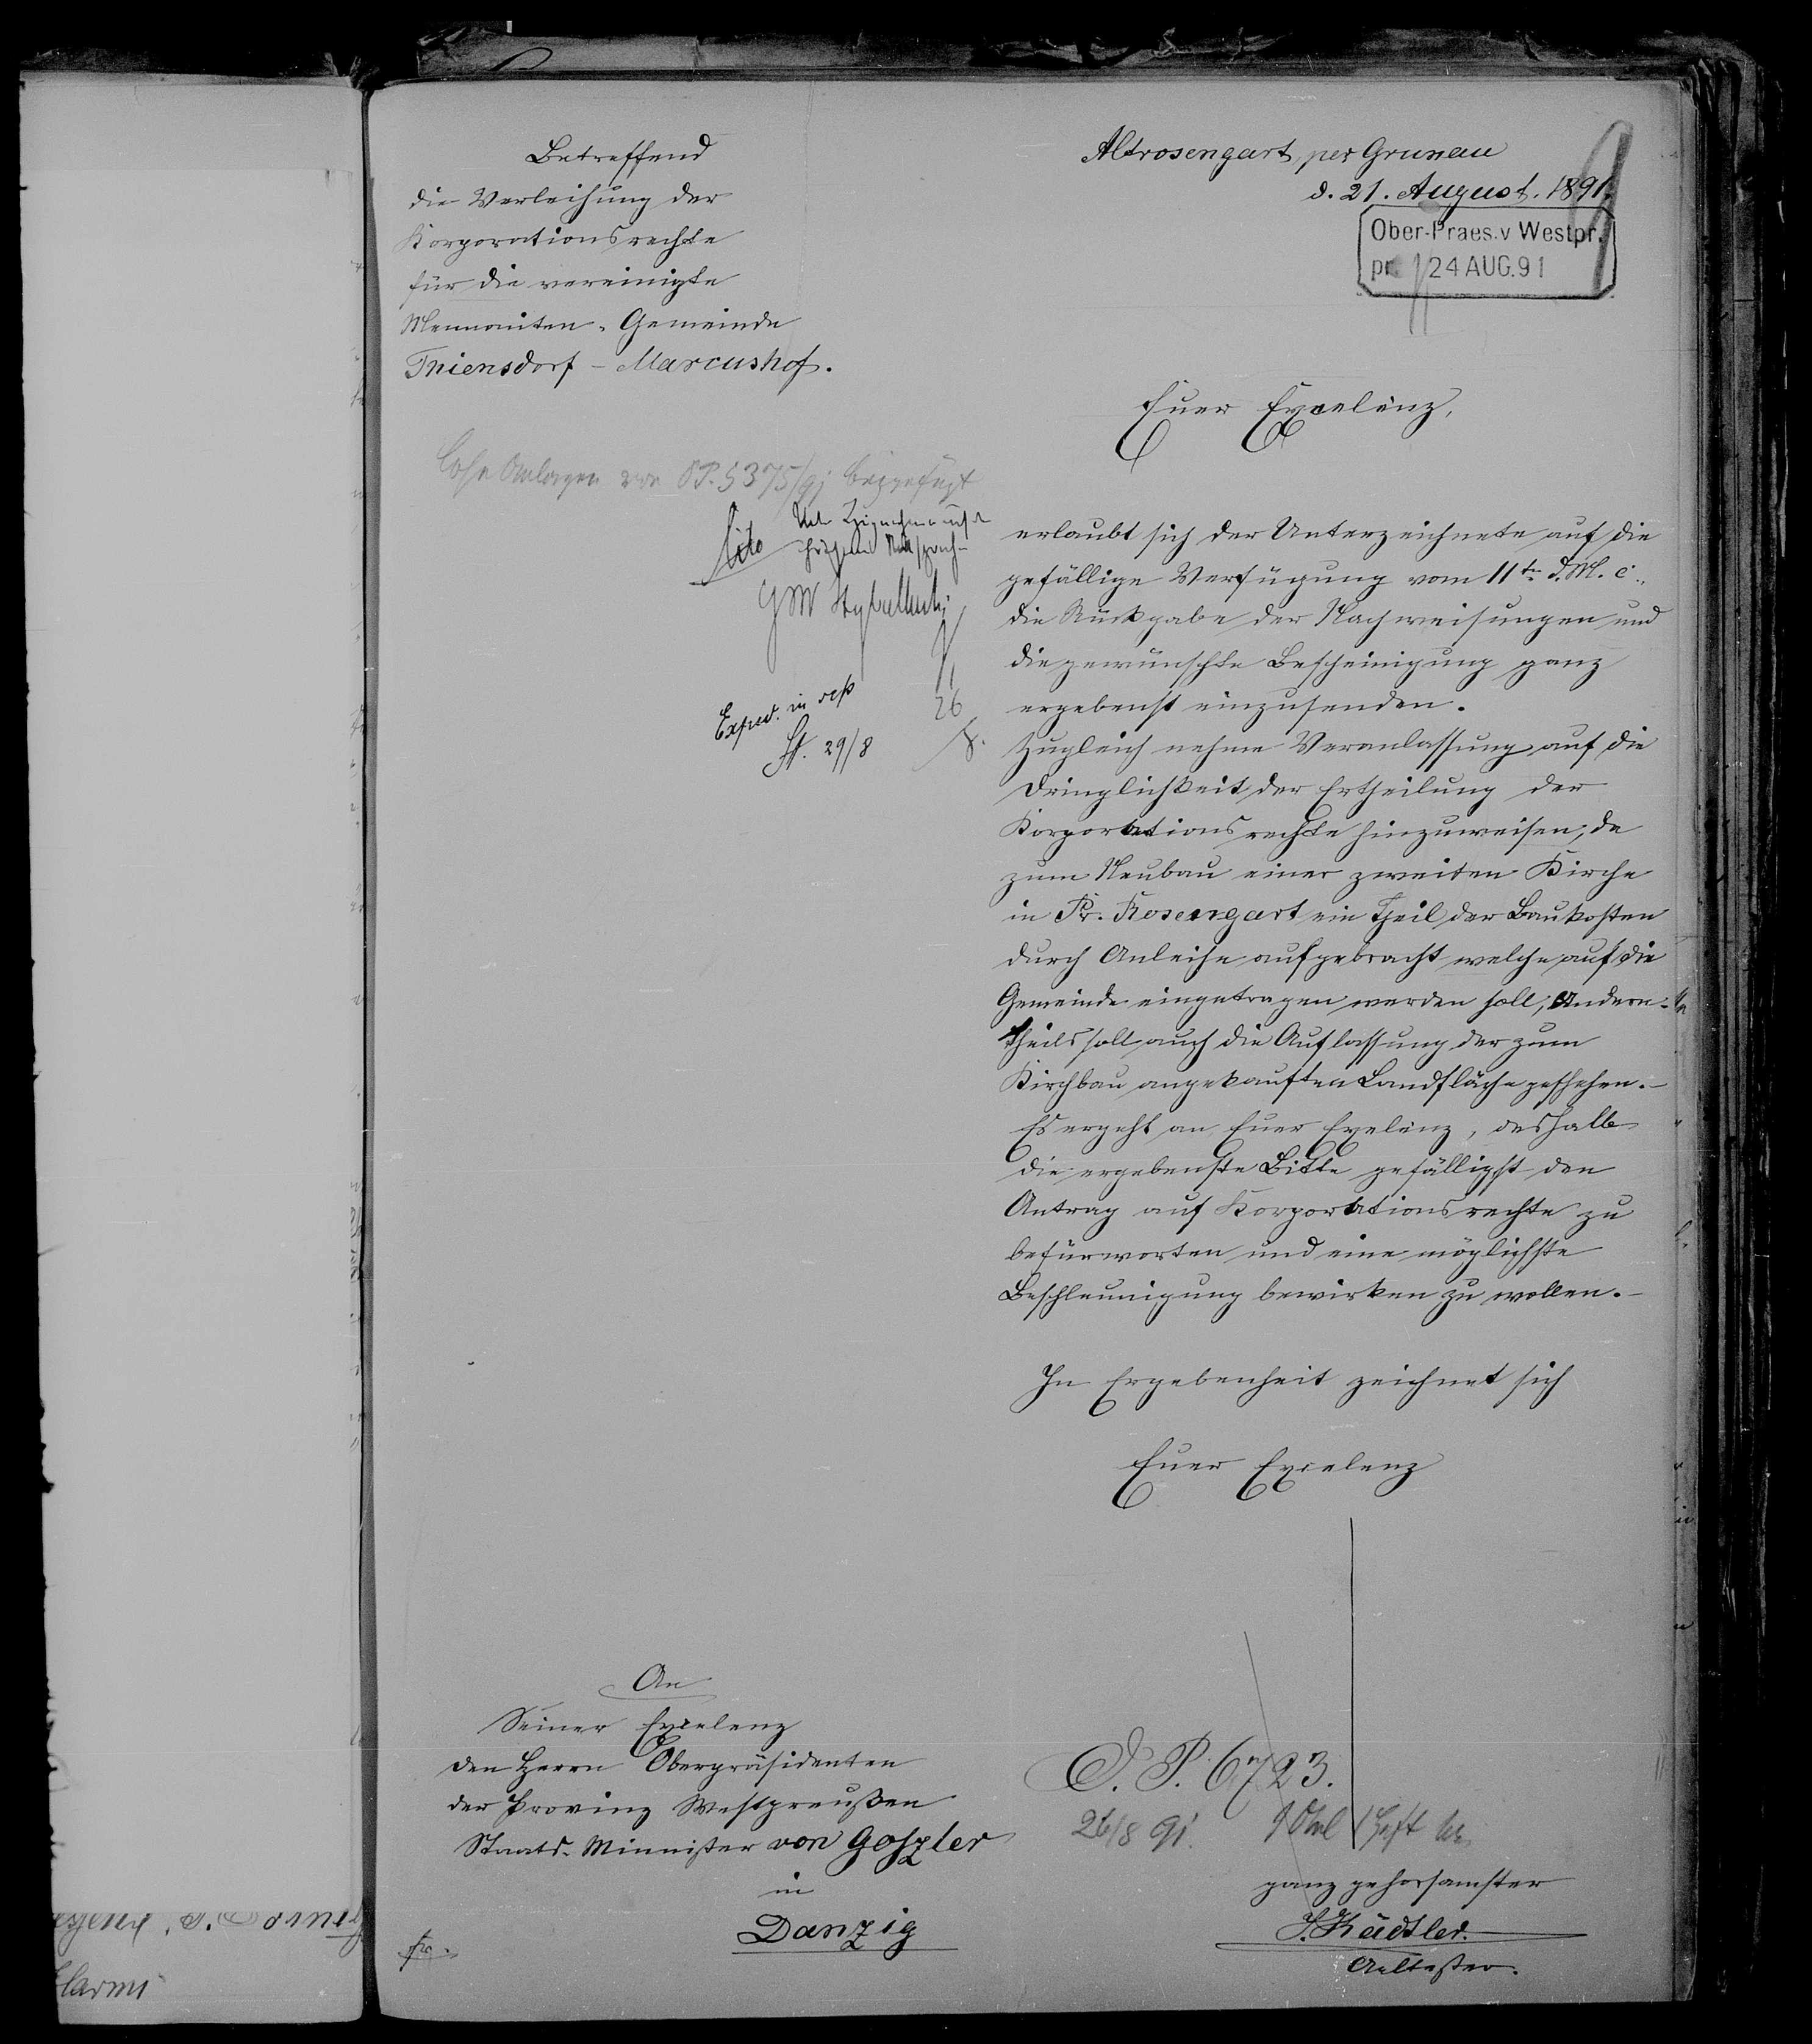 Betreffend
die Verleihung der
Korporationsrechte
für die vereinigte
Mennoniten-Gemeinde
Thiensdorf - Marcushof.
Altrosengart, per Grunau
d. 21. August. 1891.
Ober-Praes. v Westpr.
pr. 24 AUG. 91
Euer Excelenz,
Anlagen von OP. 5375/91 beigefügt
Cito
Exped. in
St. 29/8
26
8.
erlaubt sich der Unterzeichnete auf die
gefällige Verfügung vom 11ten d. M. c.,
die Rückgabe der Nachweisungen und
die gewünschte Bescheinigung ganz
ergebenst einzusenden.
Zugleich nehme Veranlassung auf die
Dringlichkeit der Ertheilung der
Korportationsrechte hinzuweisen, da
zum Neubau einer zweiten Kirche
in Pr. Rosengart ein Theil der Baukosten
durch Anleihe aufgebracht welche auf die
Gemeinde eingetragen werden soll, Andern-
Theils soll auch die Auflassung der zum
Kirchbau angekauften Landfläche geschehen. -
Es ergeht an Euer Exelenz, deshalb
die ergebenste Bitte gefälligst den
Antrag auf Korportationsrechte zu
befürworten und eine möglichste
Beschleunigung bewirken zu wollen. -
In Ergebenheit zeichnet sich
Euer Excelenz
An
Seiner Excelenz
den Herrn Oberpräsidenten
der Provinz Westpreußen
Staats-Minnister von Goszler
in
Danzig
O. P. 6723.
26/8 91. 1 Heft
ganz gehorsamster
J. Kädtler.
Aeltester.